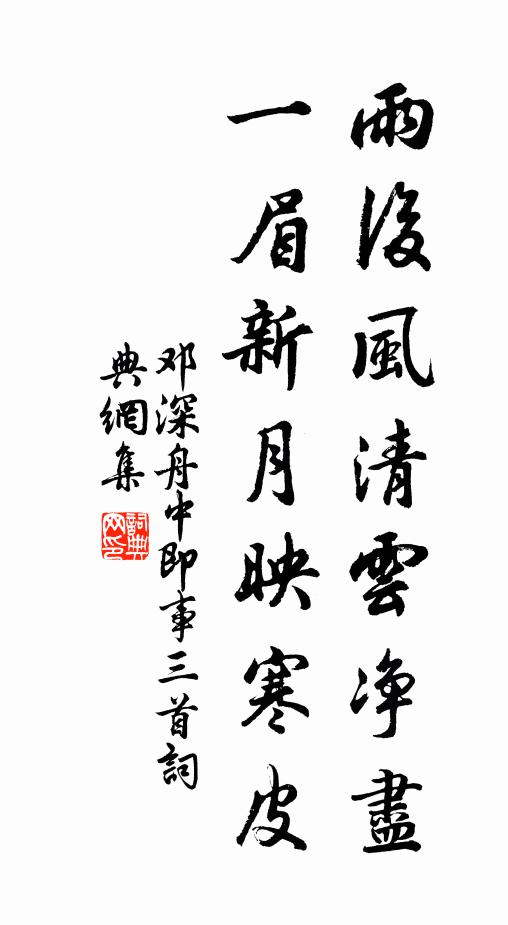 雨後風清雲净盡
一眉新月映寒皮
邓深舟中即事三首詞
典網集
詞典網印